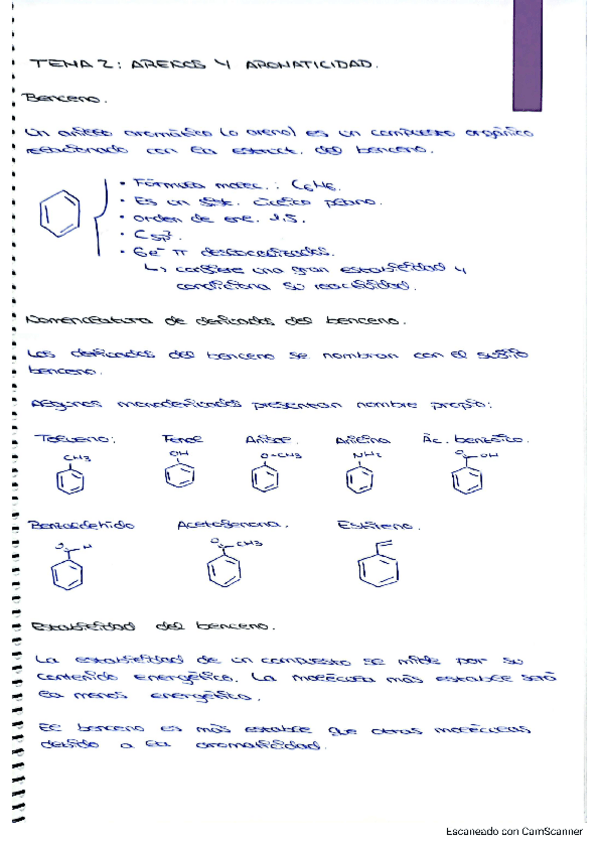 TEMA 2: ARENOS Y AROMATICIDAD.
Benceno.
Un anillo aromático (o areno) es un compuesto orgánico
relacionado con la estruct. del benceno.
• Fórmula molec.: C6H6.
• Es un sist. cíclico plano.
• Orden de enl. 1.5.
• Csp2.
• 6e- π deslocalizados.
↳ confiere una gran estabilidad y
condiciona su reactividad.
Nomenclatura de derivados del benceno.
Los derivados del benceno se nombran con el sufijo
benceno.
Algunos monoderivados presentan nombre propio:
Tolueno: Fenol Anisol Anilina Ác. benzoico.
CH3 OH O-CH3 NH2 O OH
Benzaldehído Acetofenona. Estireno.
O H O CH3
Estabilidad del benceno.
La estabilidad de un compuesto se mide por su
contenido energético. La molécula más estable será
la menos energética.
El benceno es más estable que otras moléculas
debido a la aromaticidad.
Escaneado con CamScanner